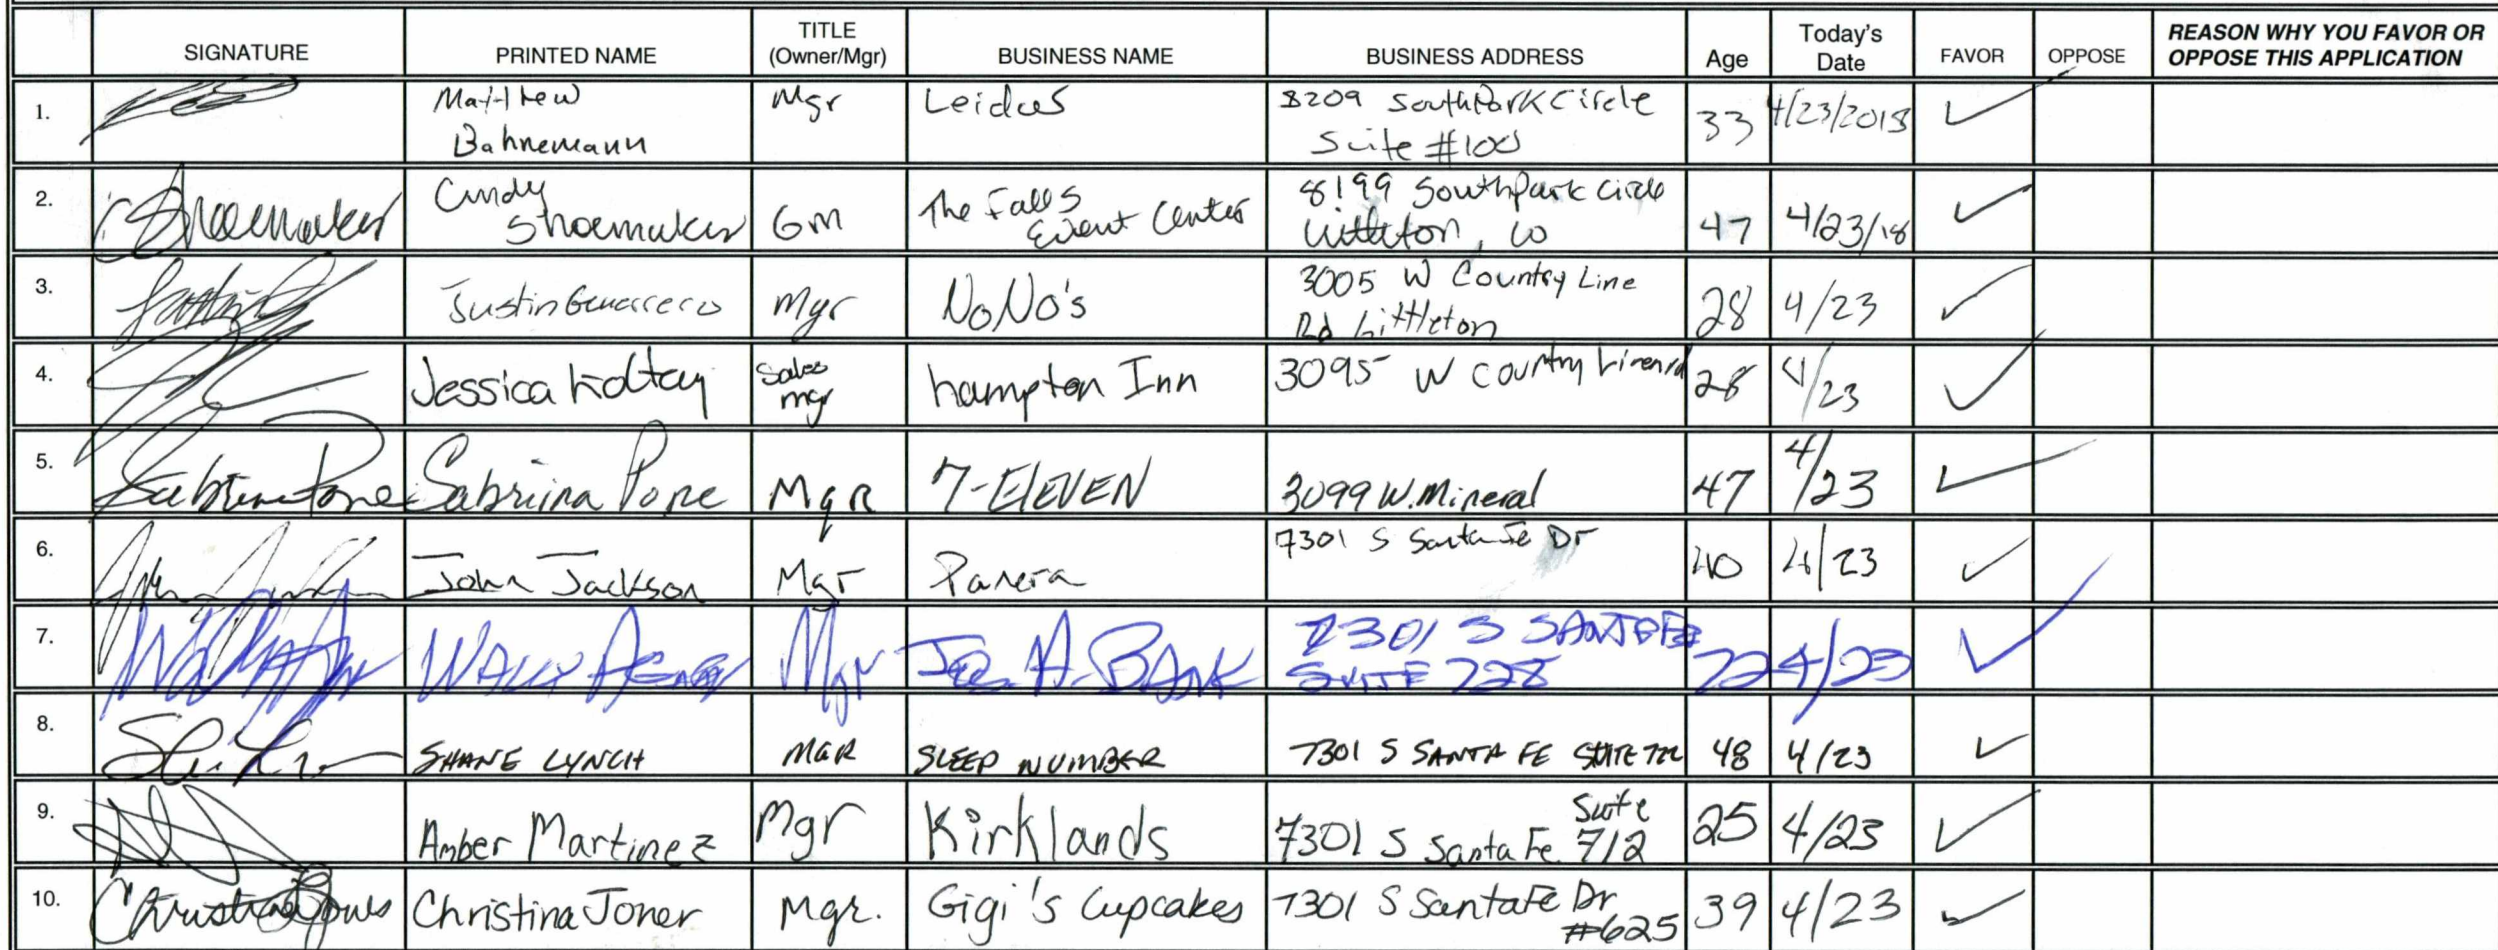 SIGNATURE PRINTED NAME TITLE (Owner/Mgr) BUSINESS NAME BUSINESS ADDRESS Age Today's Date FAVOR OPPOSE REASON WHY YOU FAVOR OR OPPOSE THIS APPLICATION
1. Matthew Bahnemann Mgr Leidos 8209 SouthPark Circle Suite #100 33 4/23/2018 ✓
2. CShoemaker Cindy Shoemaker GM The Falls Event Center 8199 Southpark Circle Littleton, CO 47 4/23/18 ✓
3. Justin Guerrero Mgr NoNo's 3005 W Country Line Rd Littleton 28 4/23 ✓
4. Jessica Sales mgr hampton Inn 3095 W Country Line rd 28 4/23 ✓
5. Sabrina Pone Sabriina Pone MgR 7-ELEVEN 3099 W. Mineral 47 4/23 ✓
6. John Jackson Mgr Panera 7301 S Santa Fe Dr 40 4/23 ✓
7. WALLY Mgr Jos. A. BANK 7301 S SANTA FE SUITE 728 22 4/23 ✓
8. SHANE LYNCH MGR SLEEP NUMBER 7301 S SANTA FE SUITE 48 4/23 ✓
9. Amber Martinez Mgr Kirklands 7301 S Santa Fe Suite 712 25 4/23 ✓
10. Christina Joner Mgr. Gigi's Cupcakes 7301 S Santa Fe Dr #625 39 4/23 ✓